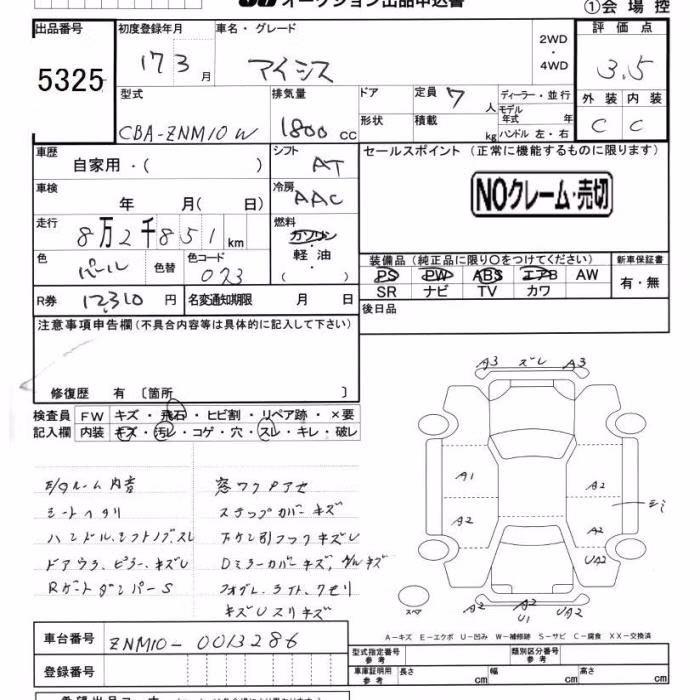 オークション出品申込書
①会場控
出品番号
5325
初度登録年月
17 3 月
車名・グレード
アイシス
2WD
・
4WD
評価点
3.5
外装 内装
C C
型式
CBA-ZNM10W
排気量
1800 cc
ドア
形状
定員 7 人
積載 kg
ディーラー・並行
モデル年式 年
ハンドル 左・右
車歴
自家用・( )
シフト
AT
セールスポイント (正常に機能するものに限ります)
NOクレーム・売切
車検
年 月( 日)
冷房
AAC
走行
8万2千851km
燃料
ガソリン
・
軽油
( )
色
パール
色替
色コード
073
装備品(純正品に限り○をつけてください)
PS PW ABS エアB AW
SR ナビ TV カワ
新車保証書
有・無
R券 12310 円
名変通知期限 月 日
後日品
注意事項申告欄(不具合内容等は具体的に記入して下さい)
修復歴 有 〔箇所 〕
検査員
記入欄
FW キズ・飛石・ヒビ割・リペア跡・×要
内装 キズ・汚レ・コゲ・穴・スレ・キレ・破レ
A3 ズレ A3
A1
A2
A2
A2
UA2
スペア
A2 A2 U1 UA2
E/Gルーム内音
シートヘタリ
ハンドル、シフトノブ、スレ
ドアウラ、ピラー、キズU
RゲートダンパーS
窓ワクPアセ
ステップカバーキズ
下ケン引フックキズU
Dミラーカバーキズ、グルキズ
フォグレ、ライト、クモリ
キズUスリキズ
A-キズ E-エクボ U-凹み W-補修跡 S-サビ C-腐食 XX-交換済
車台番号
ZNM10-0013286
登録番号
型式指定番号
参考
類別区分番号
参考
車庫証明用
参考
長さ cm 幅 cm 高さ cm